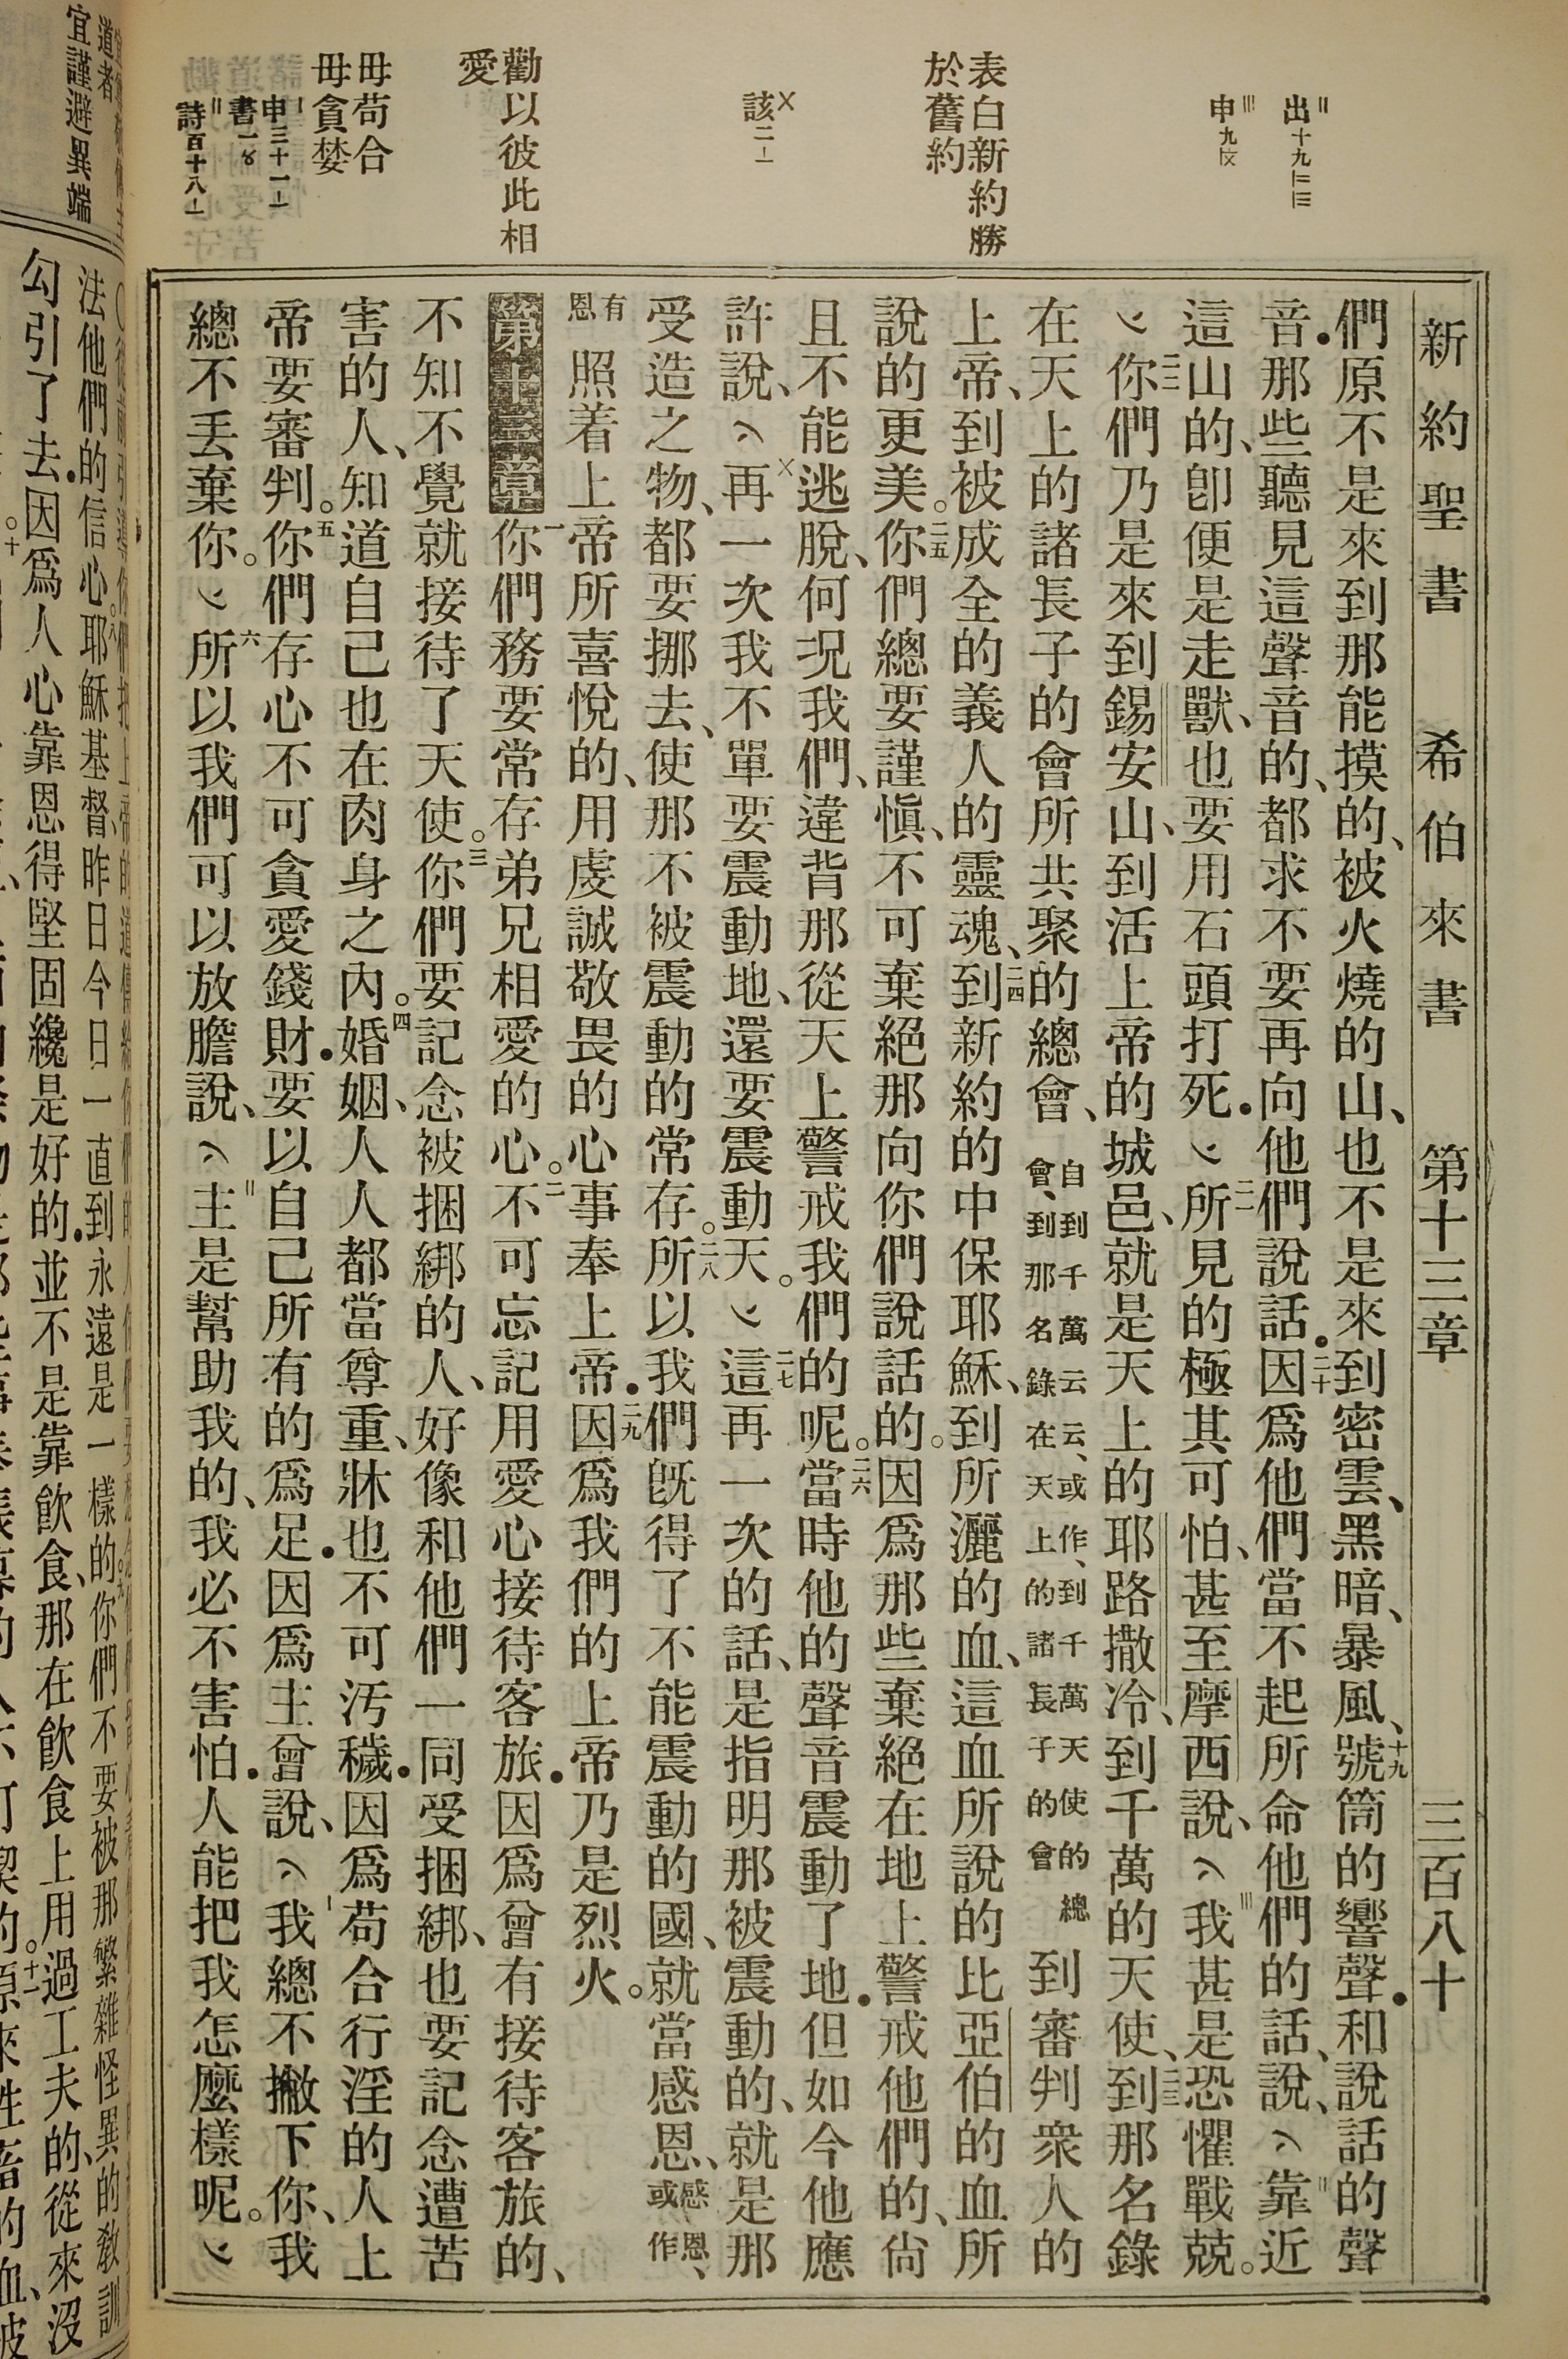 新約聖書 希伯來書 第十三章 三百八十
出十九
申九
表白新約勝
於舊約
該二
勸以彼此相
愛
毋苟合
毋貪婪
申三十一
書一
詩百十八
們原不是來到那能摸的、被火燒的山、也不是來到密雲、黑暗、暴風、十九號筒的響聲．和說話的聲
音．那些聽見這聲音的、都求不要再向他們說話．二十因爲他們當不起所命他們的話、說、靠近
這山的、卽便是走獸、也要用石頭打死．二一所見的極其可怕、甚至摩西說、我甚是恐懼戰兢。
二二你們乃是來到錫安山、到活上帝的城邑、就是天上的耶路撒冷、到千萬的天使、二三到那名錄
在天上的諸長子的會所共聚的總會、自到千萬云云、或作、到千萬天使的總會、到那名錄在天上的諸長子的會到審判衆人的
上帝、到被成全的義人的靈魂、二四到新約的中保耶穌、到所灑的血、這血所說的比亞伯的血所
說的更美。二五你們總要謹愼、不可棄絕那向你們說話的。因爲那些棄絕在地上警戒他們的、尙
且不能逃脫、何況我們、違背那從天上警戒我們的呢。二六當時他的聲音震動了地．但如今他應
許說、再一次我不單要震動地、還要震動天。二七這再一次的話、是指明那被震動的、就是那
受造之物、都要挪去、使那不被震動的常存。二八所以我們旣得了不能震動的國、就當感恩、感恩、或作
有恩照着上帝所喜悅的、用虔誠敬畏的心事奉上帝．二九因爲我們的上帝乃是烈火。
第十三章一你們務要常存弟兄相愛的心。二不可忘記用愛心接待客旅．因爲曾有接待客旅的、
不知不覺就接待了天使。三你們要記念被捆綁的人、好像和他們一同受捆綁、也要記念遭苦
害的人、知道自己也在肉身之內。四婚姻、人人都當尊重、牀也不可汚穢．因爲苟合行淫的人上
帝要審判。五你們存心不可貪愛錢財．要以自己所有的爲足．因爲主曾說、我總不撇下你、我
總不丟棄你。六所以我們可以放膽說、主是幫助我的、我必不害怕．人能把我怎麼樣呢。
道者
宜謹避異端
法他們的信心。八耶穌基督、昨日今日一直到永遠是一樣的。九你們不要被那繁雜怪異的敎訓
勾引了去．因爲人心靠恩得堅固纔是好的．並不是靠飮食、那在飮食上用過工夫的、從來沒